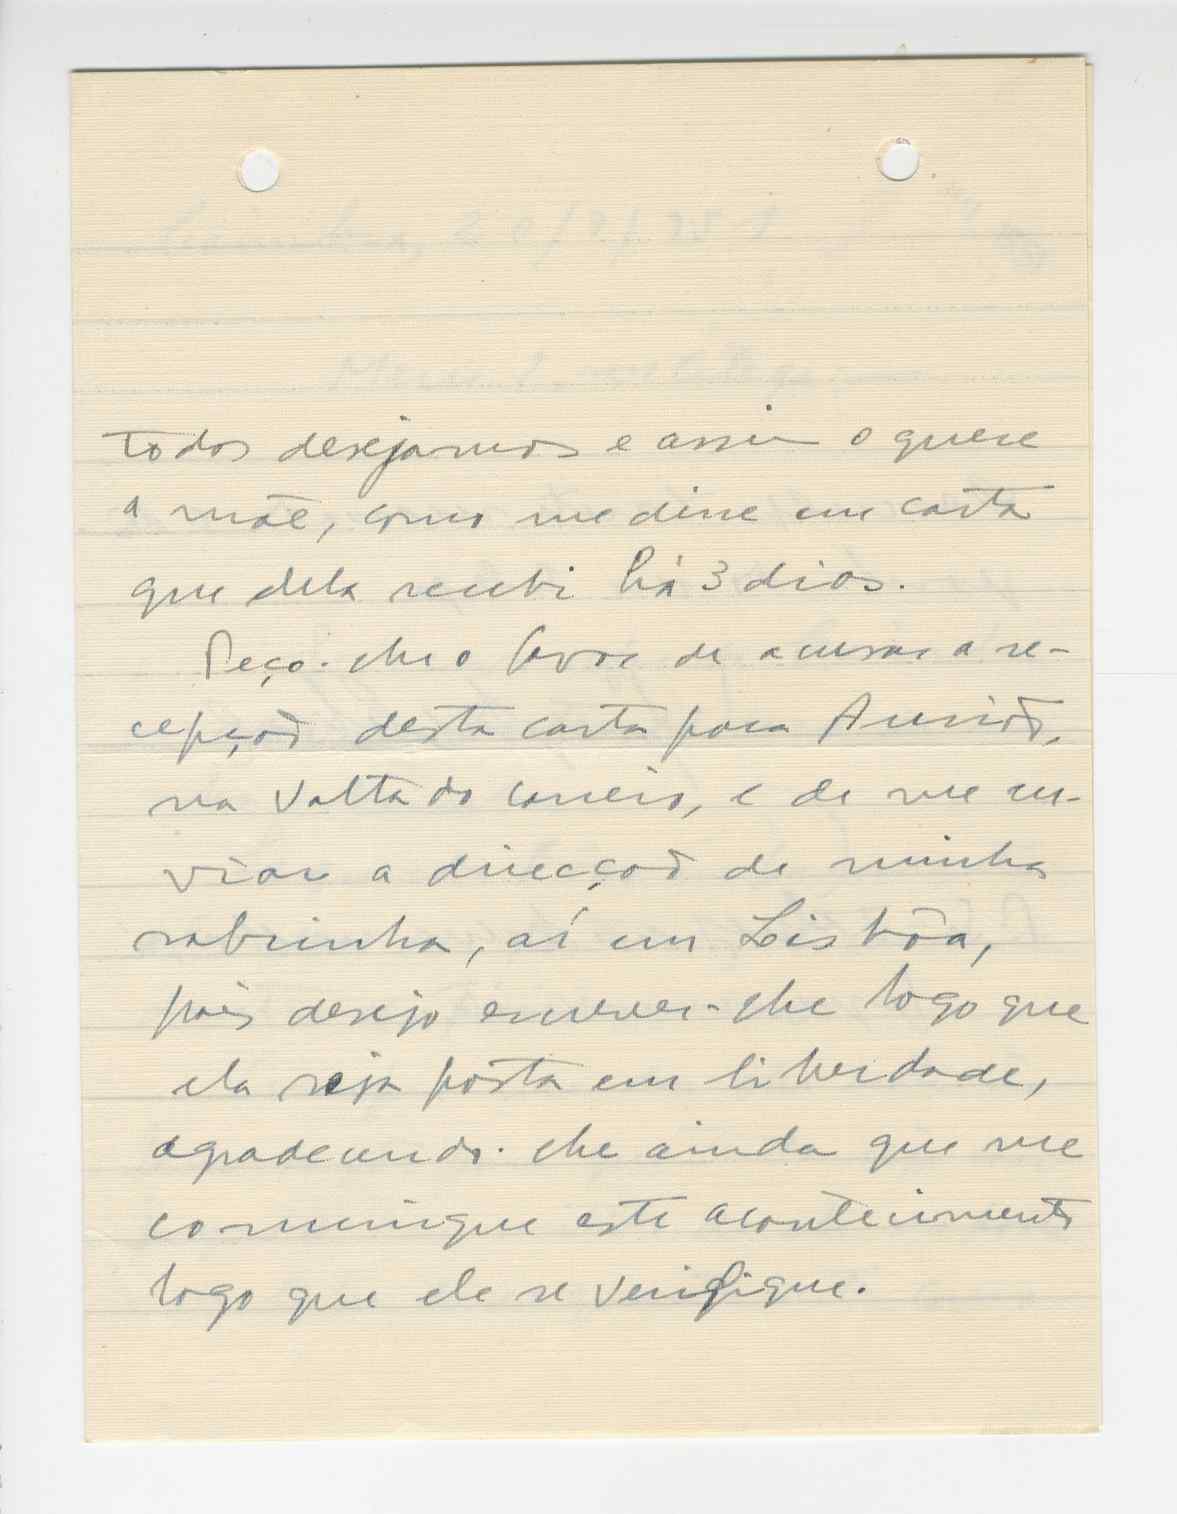 todos desejamos e assim o quere
a mãe, como me disse em carta
que dela recebi há 3 dias.
Peço-lhe o favor de acusar a re-
cepção desta carta para Ansião,
na volta do correio, e de me en-
viar a direcção de minha
sobrinha, aí em Lisbôa,
pois desejo escrever-lhe logo que
ela seja posta em liberdade,
agradecendo-lhe ainda que me
comunique este acontecimento
logo que ele se verifique.